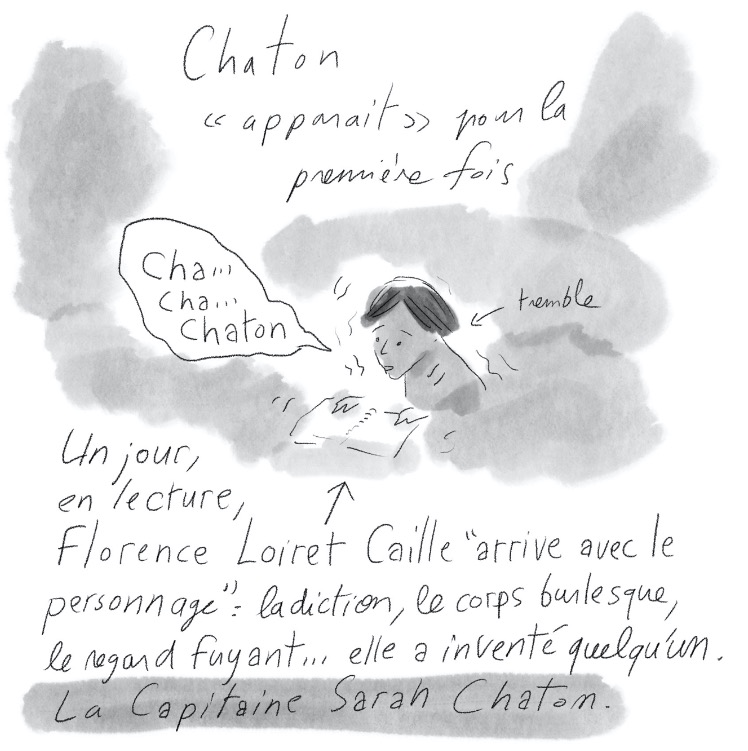 Chaton
« apparait » pour la
première fois
Cha...
cha...
Chaton
tremble
Un jour,
en lecture,
Florence Loiret Caille "arrive avec le
personnage": la diction, le corps burlesque,
le regard fuyant... elle a inventé quelqu'un.
La Capitaine Sarah Chaton.